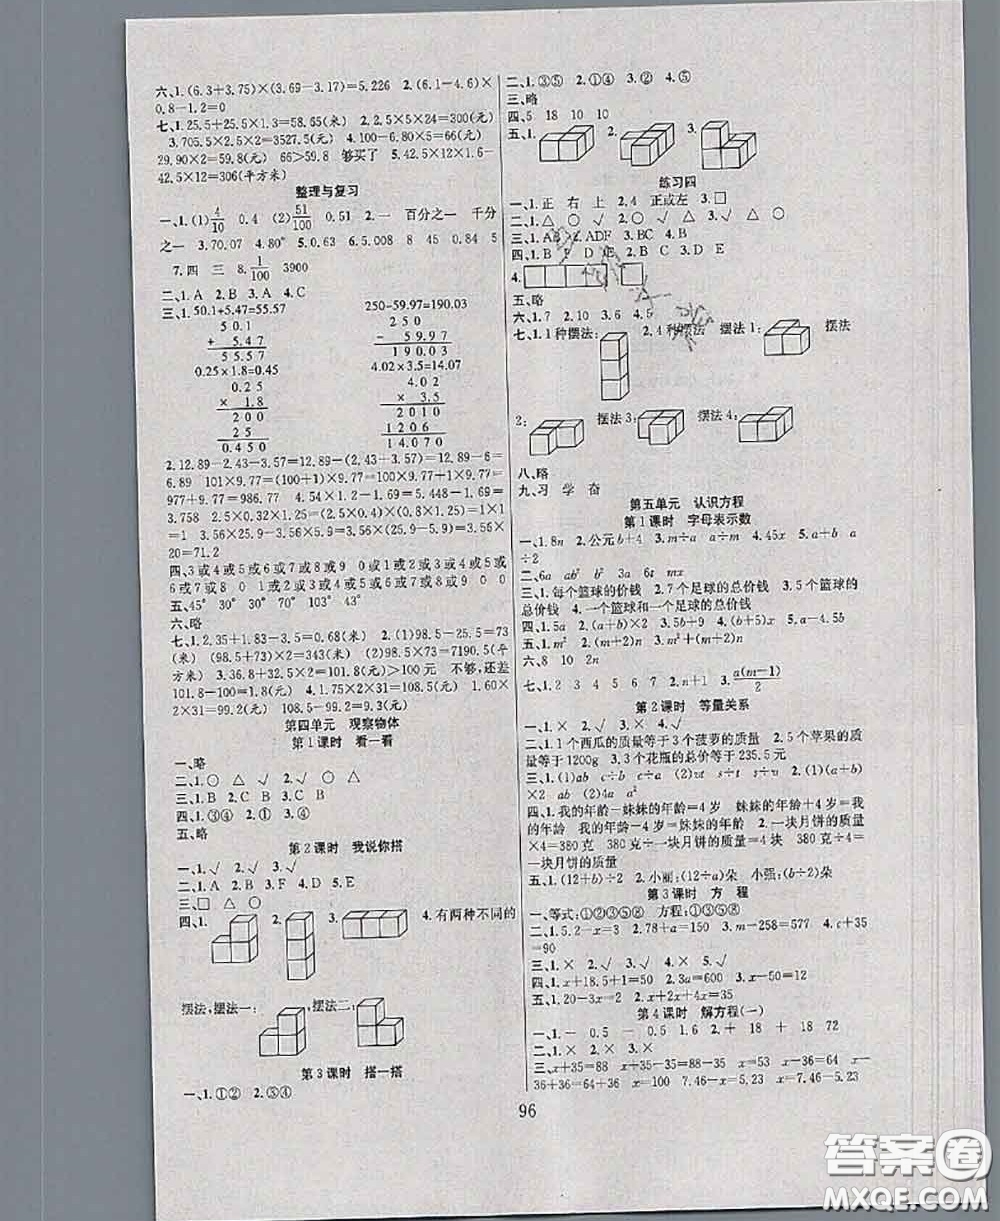 六、1.(6.3+3.75)×(3.69-3.17)=5.226 2.(6.1-4.6)×
0.8-1.2=0
七、1.25.5+25.5×1.3=58.65(米) 2.2.5×5×24=300(元)
3.705.5×2.5×2=3527.5(元) 4.100-6.80×5=66(元)
29.90×2=59.8(元) 66>59.8 够买了 5.42.5×1.6-
42.5×12=306(平方米)
整理与复习
一、1.(1)4/10 0.4 (2)51/100 0.51 2.一 百分之一 千分
之一 3.70.07 4.80° 5.0.63 6.5.008 8 45 0.84 5
7.四 三 8.1/100 3900
二、1.A 2.B 3.A 4.C
三、1.50.1+5.47=55.57 250-59.97=190.03
50.1 250
+ 5.47 - 59.97
55.57 190.03
0.25×1.8=0.45 4.02×3.5=14.07
0.25 4.02
× 1.8 × 3.5
200 2010
25 1206
0.450 14.070
2.12.89-2.43-3.57=12.89-(2.43+3.57)=12.89-6=
6.89 101×9.77=(100+1)×9.77=100×9.77+1×9.77=
977+9.77=986.77 4.54×1.2-4.54×0.2=4.54×(1.2-
0.2)=4.54×1=4.54 13.758-(3.758+1.29)=13.758-
3.758 2.5×0.32×1.25=(2.5×0.4)×(0.8×1.25)=1×1
=1 3.56×25.9-3.56×5.9=3.56×(25.9-5.9)=3.56×
20=71.2
四、3或4或5或6或7或8或9 0或1或2或3或4或5或
6或7或8 0 1或2或3或4或5或6或7或8或9 0 0
五、45° 30° 30° 70° 120° 60°
六、略
七、1.2.35+1.83-3.5=0.68(米) 2.(1)98.5-25.5=73
(米) (98.5+73)×2=343(米) (2)98.5×73=7190.5(平方
米) 3.36.8+32.5×2=101.8(元)>100元 不够,还差
101.8-100=1.8(元) 4.1.75×2×31=108.5(元) 1.60×
2×31=99.2(元) 108.5-99.2=9.3(元)
第四单元 观察物体
第1课时 看一看
一、略
二、1.○ △ √ 2.√ ○ △
三、1.B 2.C 3.A
四、1.③④ 2.④ 3.② 4.①
五、略
第2课时 我说你搭
一、1.√ 2.√ 3.√ 4.√
二、1.A 2.B 3.F 4.D 5.E
三、□ △ ○
四、1. 2. 3. 4.有两种不同的
摆法,摆法一: 摆法二:
第3课时 搭一搭
一、1.①② 2.③④
二、1.③⑤ 2.①④ 3.② 4.⑤
三、略
四、5 18 10 10
五、1. 2. 3.
练习四
一、1.正 右 上 2.4 正或左 3.□
二、1.△ ○ √ 2.○ △ √ 3.√ △ ○
三、1.AB 2.ADF 3.BC 4.B
四、1.B F D E 2.B D C 3.B D E
4.
五、略
六、1.7 2.10 3.6 4.5
七、1.1种摆法: 2.4种摆法 摆法1: 摆法
2: 摆法3: 摆法4:
八、略
九、习 学 奋
第五单元 认识方程
第1课时 字母表示数
一、1.8n 2.公元b+4 3.m÷a m÷a 4.45x 5.a
÷2
二、6a ab² b² 3a 6t mx
三、1.每个篮球的价钱 2.7个足球的总价钱 3.5个篮球的
总价钱 4.一个篮球和一个足球的总价钱
四、1.5a 2.(a+b)×2 3.5b+9 4.(b+5)x 5.a-4.5b
五、1.m² 2.(m+2)n 3.m²+(m+2)n
六、8 10 2n
七、1.2 3 4 5 6 7 2.n+1 3.a(m-1)/2
第2课时 等量关系
一、1.× 2.√ 3.× 4.√
二、1.1个西瓜的质量等于3个菠萝的质量 2.5个苹果的质
量等于1200g 3.3个花瓶的总价等于235.5元
三、1.(1)ab c÷b c÷a (2)vt s÷t s÷v 2.(1)(a+b)
×2 ab (2)4a a²
四、1.我的年龄-妹妹的年龄=4岁 妹妹的年龄+4岁=我
的年龄 我的年龄-4岁=妹妹的年龄 2.一块月饼的质量
×4=380克 380克÷一块月饼的质量=4块 380克÷4=
一块月饼的质量
五、1.(12+b)÷2 2.小丽:(12÷a)朵 小强:(b÷2)朵
第3课时 方程
一、等式:①②③⑤⑧ 方程:①③⑤⑧
二、1.5.2-x=3 2.78+a=150 3.m-258=577 4.c+35
=90
三、1.× 2.√ 3.√ 4.× 5.√
四、1.x+18.5=21 2.3a=600 3.x-50=12
五、1.20-3x=2 2.x+2x+4x=35
第4课时 解方程(一)
一、1.- 0.5 - 0.5 1.6 2.+ 18 + 18 72
二、1.× 2.× 3.×
三、x+35=88 x+35-35=88-35 x=53 x-36=64 x-
36+36=64+36 x=100 7.46-x=5.23 x=7.46-5.23
96
答案圈
MXQE.COM